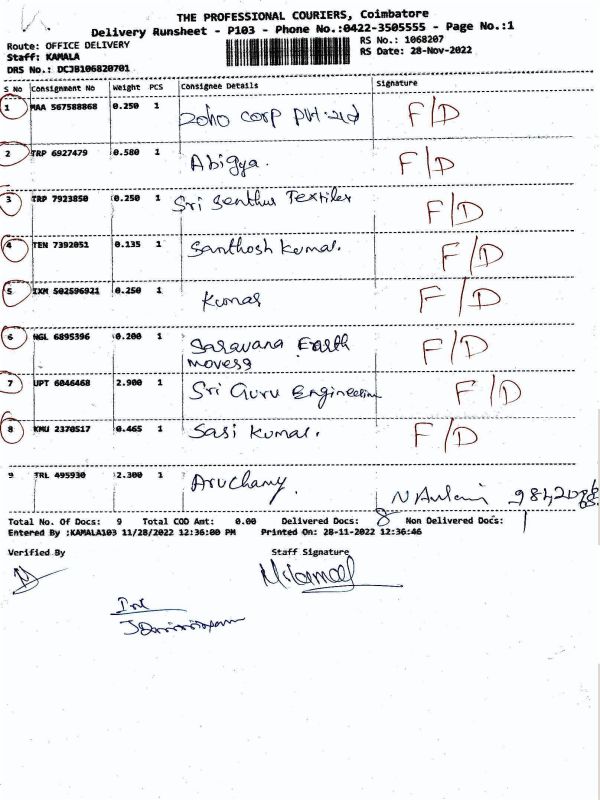 THE PROFESSIONAL COURIERS, Coimbatore
Delivery Runsheet - P103 - Phone No.:0422-3505555 - Page No.:1
Route: OFFICE DELIVERY RS No.: 1068207
Staff: KAMALA RS Date: 28-Nov-2022
DRS No.: DCJB106820701
S No Consignment No Weight PCS Consignee Details Signature
1 MAA 567588868 0.250 1 Zoho Corp Pvt Ltd F/D
2 TRP 6927479 0.580 1 Abigya. F/D
3 TRP 7923850 0.250 1 Sri Senthur Textiles F/D
4 TEN 7392051 0.135 1 Santhosh Kumar. F/D
5 IXM 502596921 0.250 1 Kumar F/D
6 NGL 6895396 0.200 1 Saravana Earth F/D
movers
7 UPT 6046468 2.900 1 Sri Guru Engineering F/D
8 KMU 2370517 0.465 1 Sasi Kumar. F/D
9 TRL 495930 2.300 1 Aruchamy.
Total No. Of Docs: 9 Total COD Amt: 0.00 Delivered Docs: 8 Non Delivered Docs: 1
Entered By :KAMALA103 11/28/2022 12:36:00 PM Printed On: 28-11-2022 12:36:46
Verified By Staff Signature